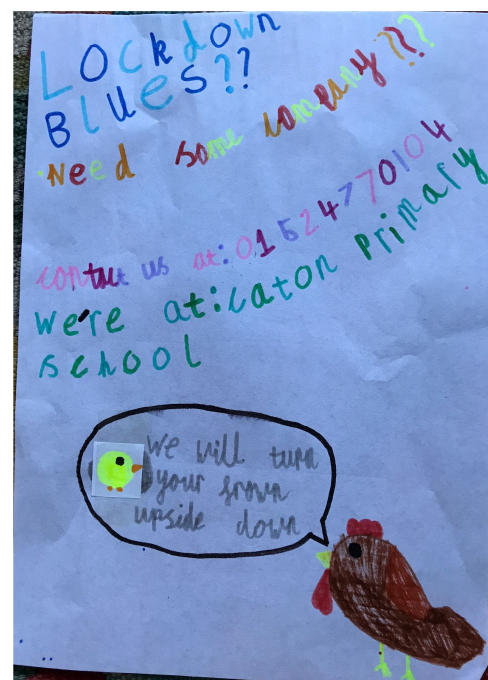 Lockdown
Blues??
Need some company???
contact us at:01524770104
we're at:caton primary
school
we will turn
your frown
upside down